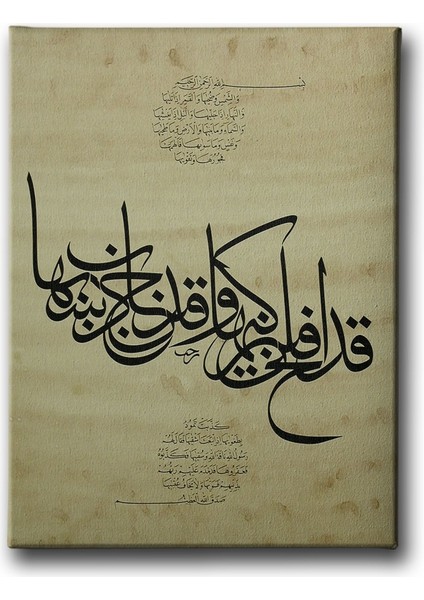 بسم الله الرحمن الرحيم
والشمس وضحيها والقمر اذا تليها
والنهار اذا جليها والليل اذا يغشيها
والسماء وما بنيها والارض وما طحيها
ونفس وما سويها فالهمها
فجورها وتقويها
قد افلح من زكيها وقد خاب من دسيها
كذبت ثمود
بطغويها اذ انبعث اشقيها فقال لهم
رسول الله ناقة الله وسقيها فكذبوه
فعقروها فدمدم عليهم ربهم
بذنبهم فسويها ولا يخاف عقبيها
صدق الله العظيم